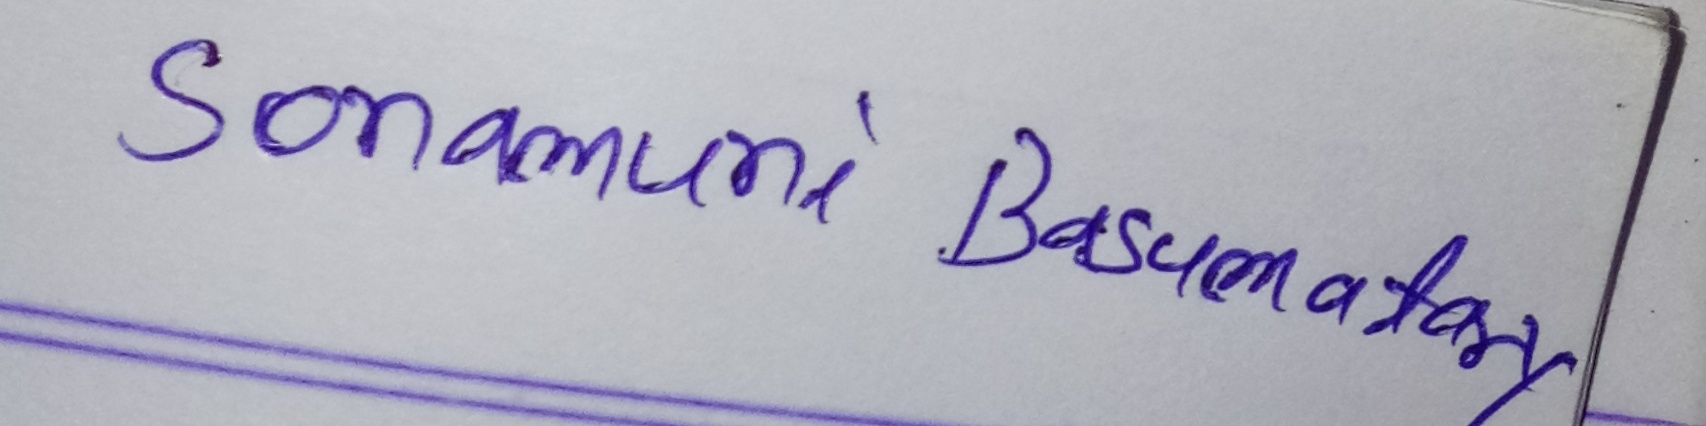 Sonamuni Basumatary